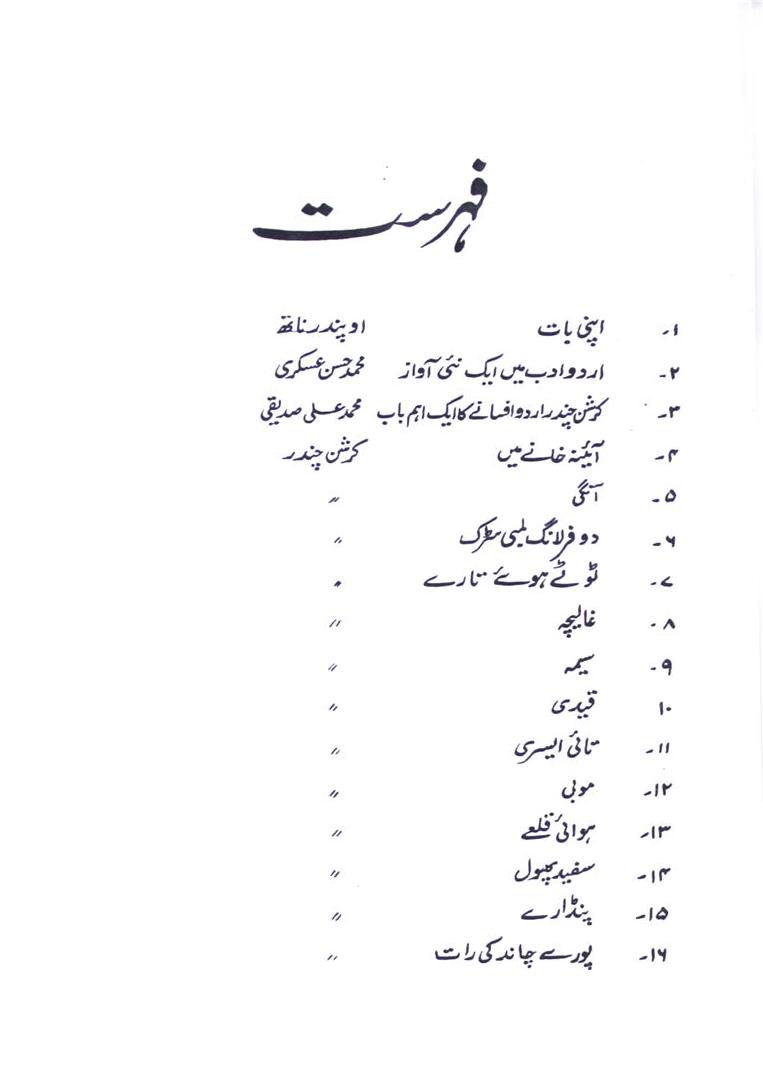 فہرست
۱۔ اپنی بات اوپندر ناتھ
۲۔ اردو ادب میں ایک نئی آواز محمد حسن عسکری
۳۔ کرشن چندر اردو افسانے کا ایک اہم باب محمد علی صدیقی
۴۔ آئینہ خانے میں کرشن چندر
۵۔ آنگی 〃
۶۔ دو فرلانگ لمبی سڑک 〃
۷۔ ٹوٹے ہوئے تارے 〃
۸۔ غالیچہ 〃
۹۔ سیمہ 〃
۱۰ قیدی 〃
۱۱۔ تائی ایسری 〃
۱۲۔ موبی 〃
۱۳۔ ہوائی قلعے 〃
۱۴۔ سفید پھول 〃
۱۵۔ پنڈارے 〃
۱۶۔ پورے چاند کی رات 〃